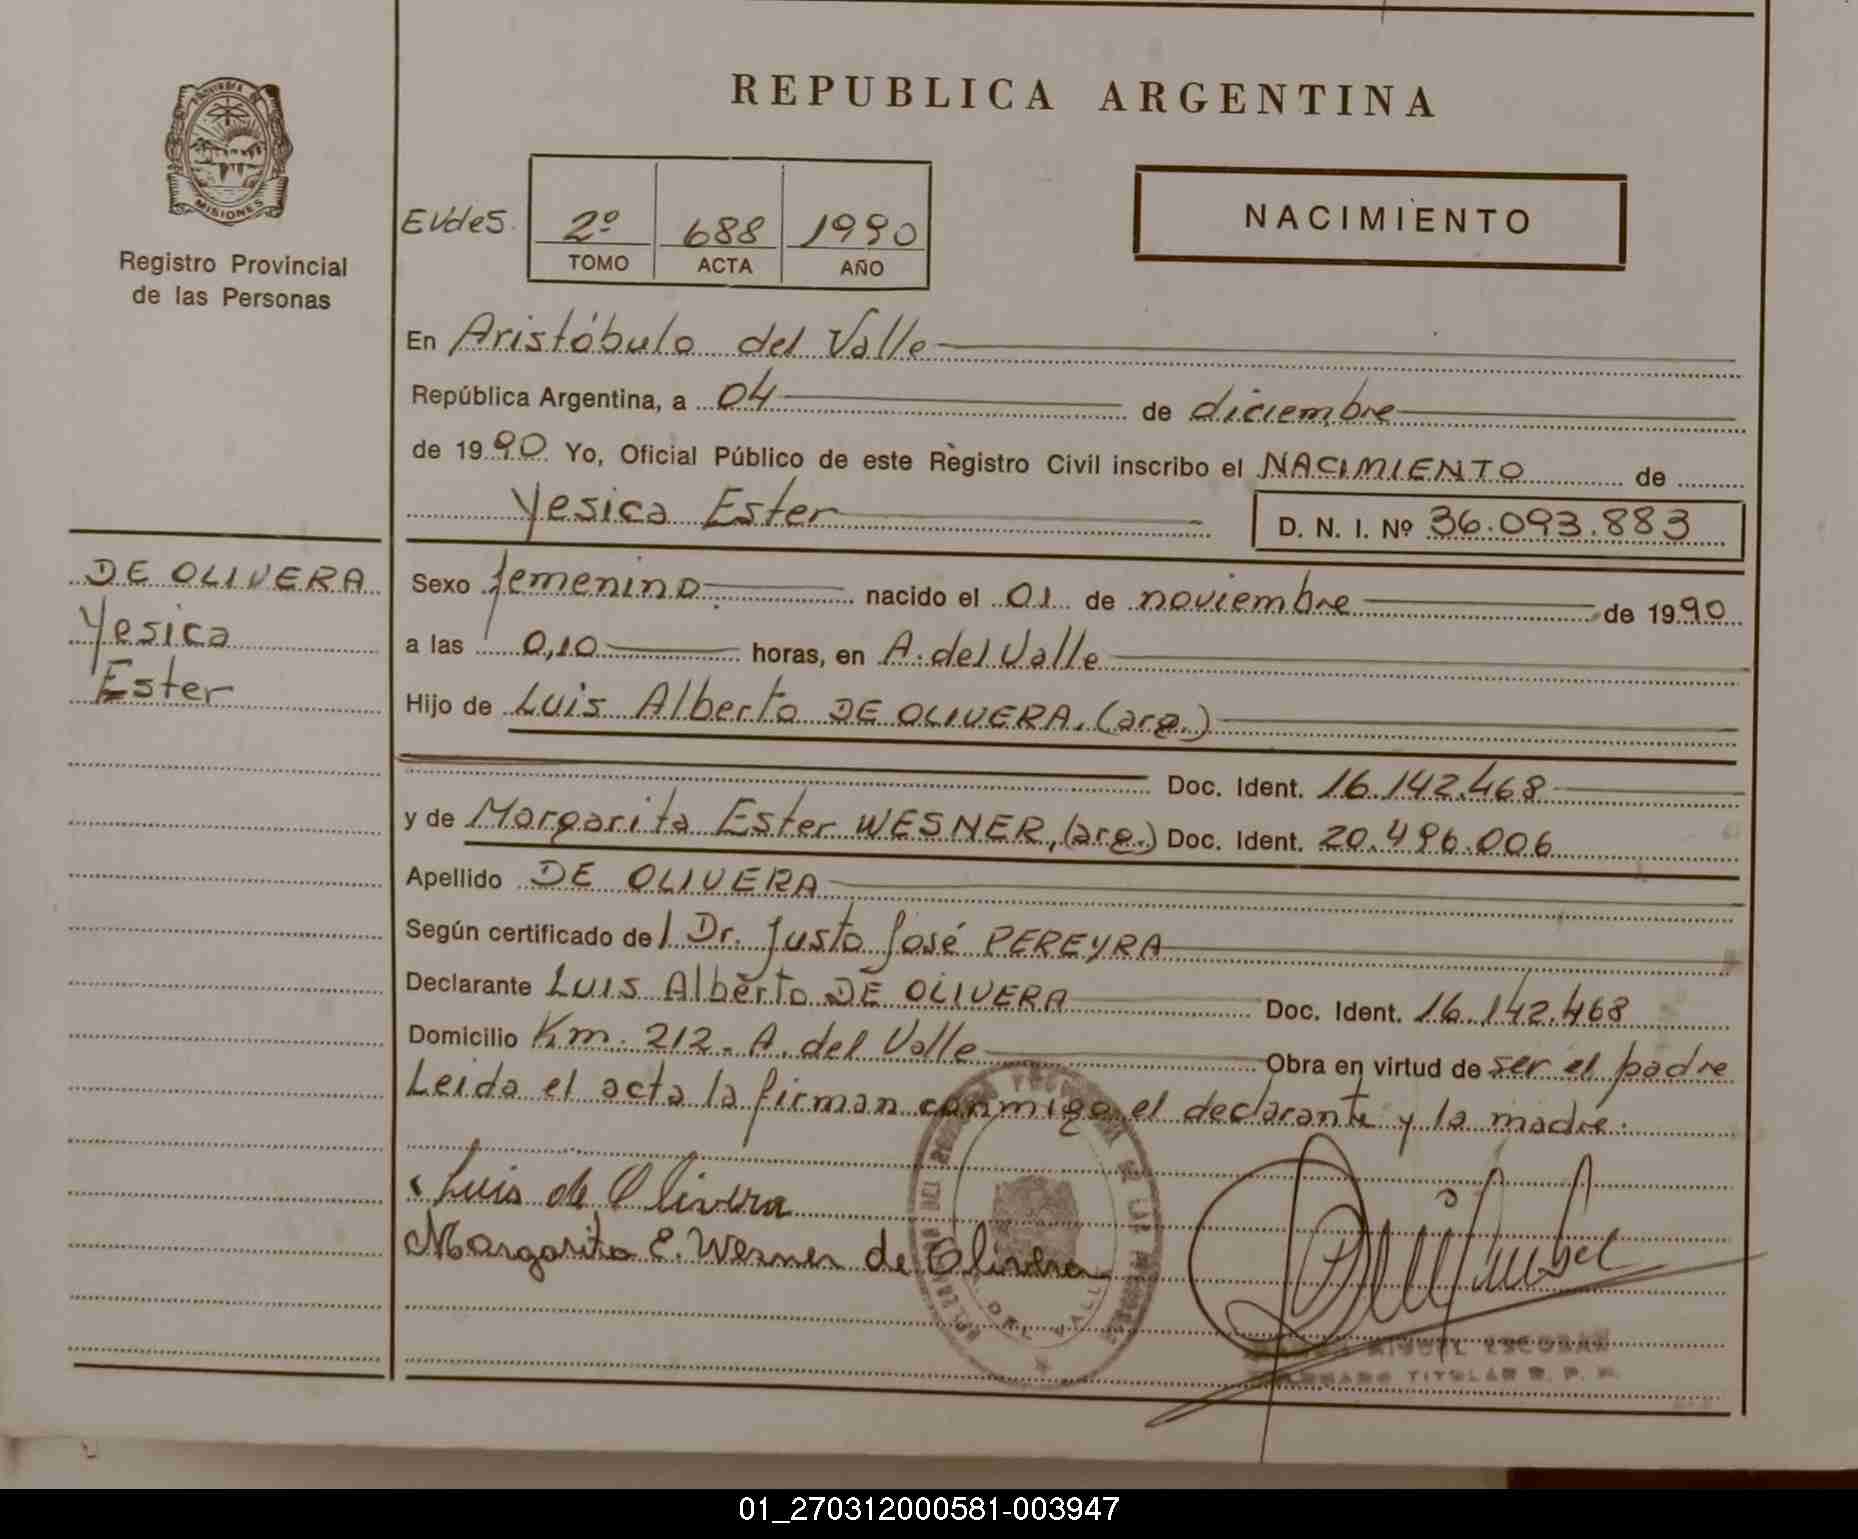 REPUBLICA ARGENTINA
PROVINCIA DE
MISIONES
Registro Provincial
de las Personas
Evdes. 2º 688 1990
TOMO ACTA AÑO
NACIMIENTO
En Aristóbulo del Valle
República Argentina, a 04 de diciembre
de 1990 Yo, Oficial Público de este Registro Civil inscribo el NACIMIENTO de
Yesica Ester D. N. I. Nº 36.093.883
DE OLIVERA
Yesica
Ester
Sexo femenino nacido el 01 de noviembre de 1990
a las 0,10 horas, en A. del Valle
Hijo de Luis Alberto DE OLIVERA, (arg.)
Doc. Ident. 16.142.468
y de Margarita Ester WESNER, (arg.) Doc. Ident. 20.496.006
Apellido DE OLIVERA
Según certificado del Dr. Justo José PEREYRA
Declarante Luis Alberto DE OLIVERA Doc. Ident. 16.142.468
Domicilio Km. 212 - A. del Valle Obra en virtud de ser el padre
Leida el acta la firman conmigo el declarante y la madre.
Luis de Olivera
Margarita E. Wesner de Olivera
DEL VALLE
MIGUEL ESCOBAR
TITULAR R. P. P.
01_270312000581-003947